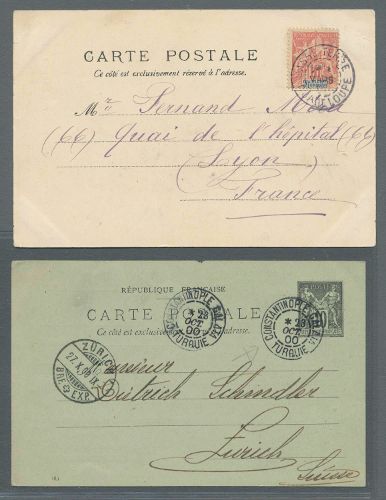 CARTE POSTALE
Ce côté est exclusivement réservé à l'adresse.
BASSE-TERRE
GUADELOUPE
Mr Fernand
(66) Quai de l'hôpital (66)
Lyon
France
RÉPUBLIQUE FRANÇAISE
CARTE POSTALE
Ce côté est exclusivement
CONSTANTINOPLE GALATA
* 23
OCT
00
TURQUIE
CONSTANTINOPLE GALATA
* 23
OCT
00
TURQUIE
ZÜRICH
27.X.00.IX
BRF. EXP.
Monsieur
Dietrich Schindler
Zürich
Suisse